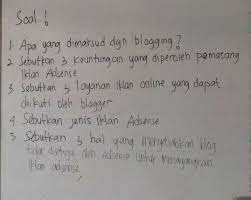 Soal !
1 Apa yang dimaksud dgn blogging ?
2 Sebutkan 3 keuntungan yang diperoleh pemasang
iklan Adsense
3 Sebutkan 3 layanan iklan online yang dapat
diikuti oleh blogger
4 Sebutkan jenis iklan Adsense
5 Sebutkan 3 hal yang menyebabkan blog
tidak disetujui oleh Adsense untuk menayangkan
iklan adsense